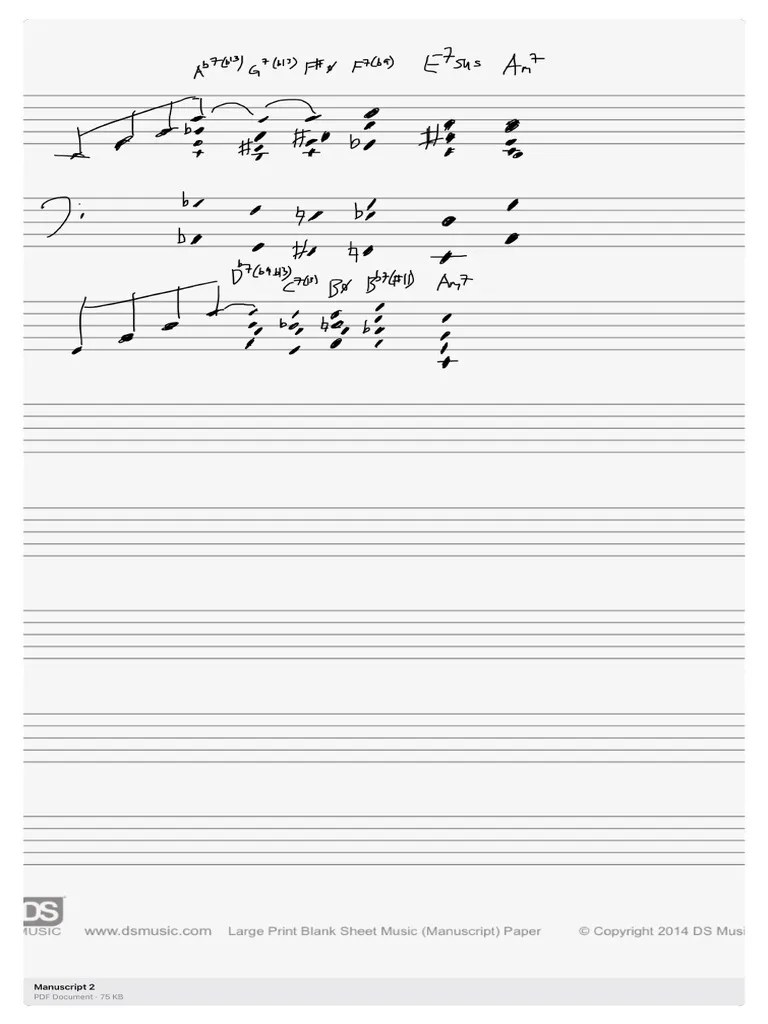 Ab7(b13) G7(b13) F#ø F7(b9) E7sus Am7
Db7(b9,b13) C7(13) Bø Bb7(#11) Am7
DS
MUSIC www.dsmusic.com Large Print Blank Sheet Music (Manuscript) Paper © Copyright 2014 DS Musi
Manuscript 2
PDF Document · 75 KB